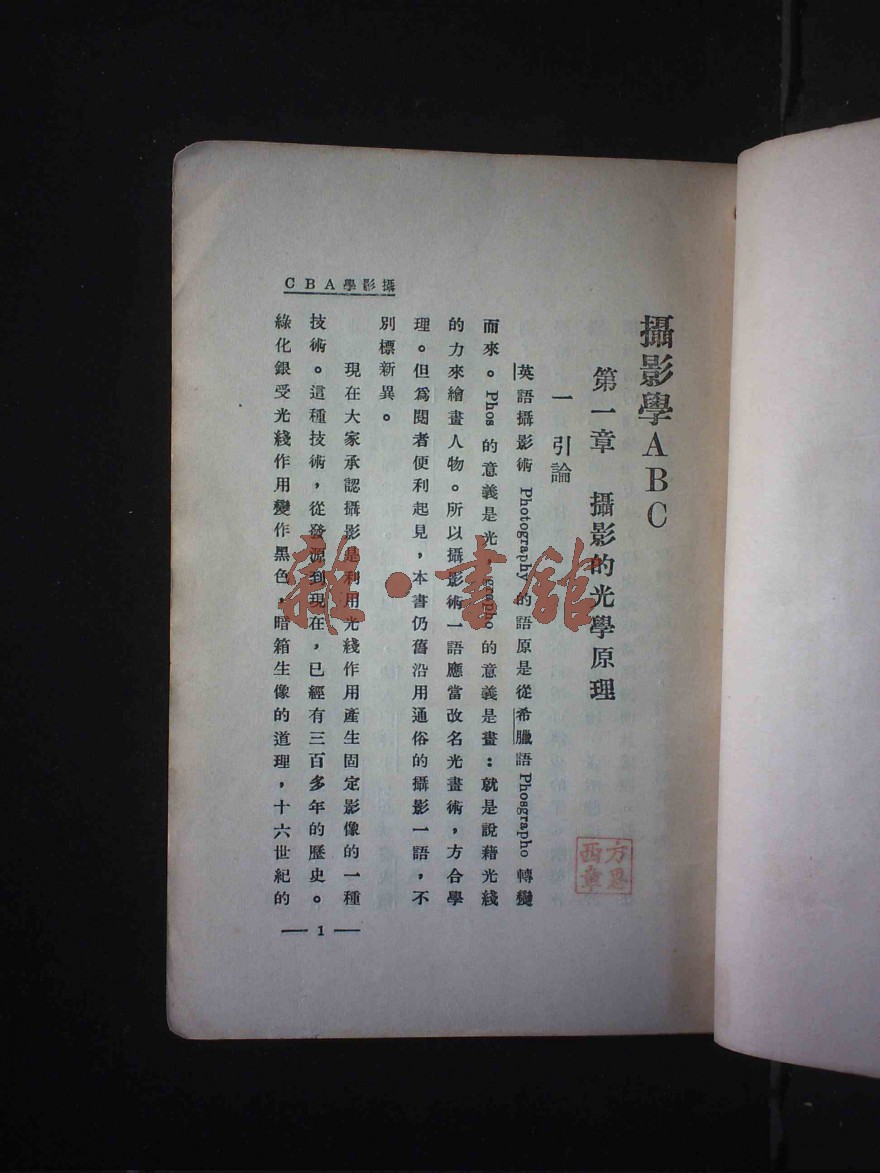 攝影學ABC
第一章　攝影的光學原理
一　引論
英語攝影術 Photography 的語原是從希臘語 Phosgrapho 轉變
而來。Phos 的意義是光，grapho 的意義是畫：就是說藉光綫
的力來繪畫人物。所以攝影術一語應當改名光畫術，方合學
理。但爲閱者便利起見，本書仍舊沿用通俗的攝影一語，不
別標新異。
現在大家承認攝影是利用光綫作用產生固定影像的一種
技術。這種技術，從發源到現在，已經有三百多年的歷史。
綠化銀受光綫作用變作黑色，暗箱生像的道理，十六世紀的
CBA學影攝
— 1 —
雜·書館
方恩
西章